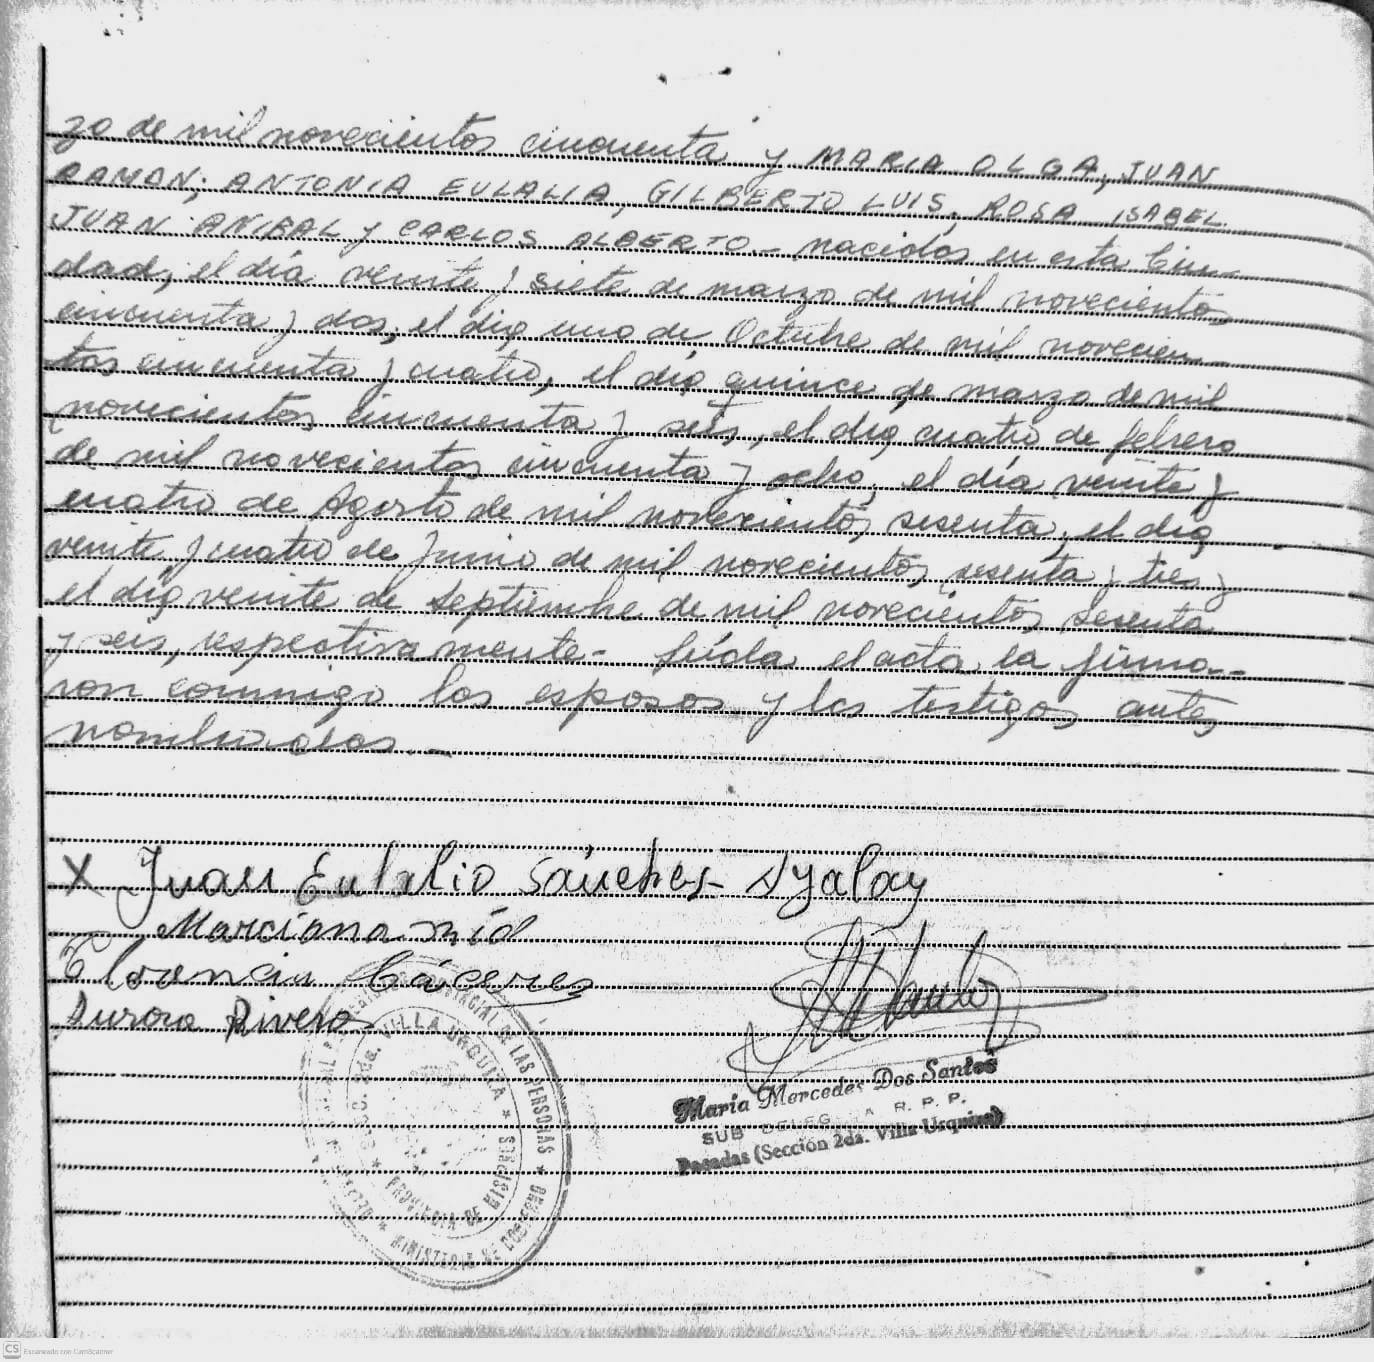 zo de mil novecientos cincuenta y MARIA OLGA, JUAN
RAMON; ANTONIA EULALIA, GILBERTO LUIS, ROSA ISABEL.
JUAN ANIBAL y CARLOS ALBERTO.- nacidos en esta Ciu-
dad, el día veinte y siete de marzo de mil novecientos
cincuenta y dos, el día uno de Octubre de mil novecien-
tos cincuenta y cuatro, el día quince de marzo de mil
novecientos cincuenta y seis, el día cuatro de febrero
de mil novecientos cincuenta y ocho, el día veinte y
cuatro de Agosto de mil novecientos sesenta, el día
veinte y cuatro de Junio de mil novecientos sesenta y tres y
el día veinte de Septiembre de mil novecientos sesenta
y seis, respectivamente- Leída el acta la firma--
ron conmigo los esposos y los testigos antes
nombrados.-
X Juan Eulalio Sánches- Ayalay
Marciana
Florencia Cáceres
Aurora Rivero
PROVINCIAL DE LAS PERSONAS * MINISTERIO DE GOBIERNO *
Secc. 2da. VILLA URQUIZA * PROVINCIA DE MISIONES *
María Mercedes Dos Santos
SUB DELEGADA R. P. P.
Posadas (Sección 2da. Villa Urquiza)
CS Escaneado con CamScanner